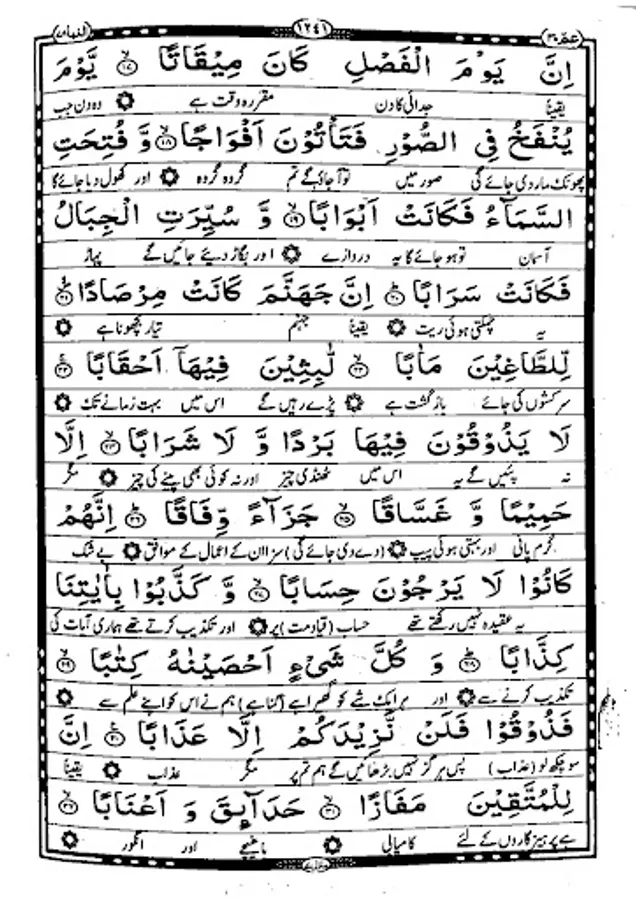 عمّ ۳۰ ۱۲۴۱ النبا ۷۸
اِنَّ يَوْمَ الْفَصْلِ كَانَ مِيْقَاتًا ۝۱۷ يَّوْمَ
یقیناً جدائی کا دن مقررہ وقت ہے وہ دن جب
يُنْفَخُ فِي الصُّوْرِ فَتَاْتُوْنَ اَفْوَاجًا ۝۱۸ وَّ فُتِحَتِ
پھونک مار دی جائے گی صور میں تو آ جاؤ گے تم گروہ گروہ اور کھول دیا جائے گا
السَّمَآءُ فَكَانَتْ اَبْوَابًا ۝۱۹ وَّ سُيِّرَتِ الْجِبَالُ
آسمان تو ہو جائے گا یہ دروازے اور بگاڑ دیئے جائیں گے پہاڑ
فَكَانَتْ سَرَابًا ۝۲۰ اِنَّ جَهَنَّمَ كَانَتْ مِرْصَادًا ۝۲۱
یہ چمکتی ہوئی ریت یقیناً جہنم تیار بچھونا ہے
لِّلطَّاغِيْنَ مَاٰبًا ۝۲۲ لّٰبِثِيْنَ فِيْهَآ اَحْقَابًا ۝۲۳
سرکشوں کی جائے بازگشت ہے پڑے رہیں گے اس میں بہت زمانے تک
لَا يَذُوْقُوْنَ فِيْهَا بَرْدًا وَّ لَا شَرَابًا ۝۲۴ اِلَّا
نہ پئیں گے یہ اس میں ٹھنڈی چیز اور نہ کوئی بھی پینے کی چیز مگر
حَمِيْمًا وَّ غَسَّاقًا ۝۲۵ جَزَآءً وِّفَاقًا ۝۲۶ اِنَّهُمْ
گرم پانی اور بہتی ہوئی پیپ (دے دی جائے گی) سزا ان کے اعمال کے موافق بے شک
كَانُوْا لَا يَرْجُوْنَ حِسَابًا ۝۲۷ وَّ كَذَّبُوْا بِاٰيٰتِنَا
یہ عقیدہ نہیں رکھتے تھے حساب (قیامت) پر اور تکذیب کرتے تھے ہماری آیات کی
كِذَّابًا ۝۲۸ وَ كُلَّ شَيْءٍ اَحْصَيْنٰهُ كِتٰبًا ۝۲۹
تکذیب کرنے سے اور ہر ایک شے کو گھیرا ہے (گنا ہے) ہم نے اس کو اپنے علم سے
فَذُوْقُوْا فَلَنْ نَّزِيْدَكُمْ اِلَّا عَذَابًا ۝۳۰ اِنَّ
سو چکھ لو (عذاب) پس ہرگز نہیں بڑھائیں گے ہم تم پر مگر عذاب یقیناً
لِلْمُتَّقِيْنَ مَفَازًا ۝۳۱ حَدَآئِقَ وَ اَعْنَابًا ۝۳۲
ہے پرہیزگاروں کے لئے کامیابی باغیچے اور انگور